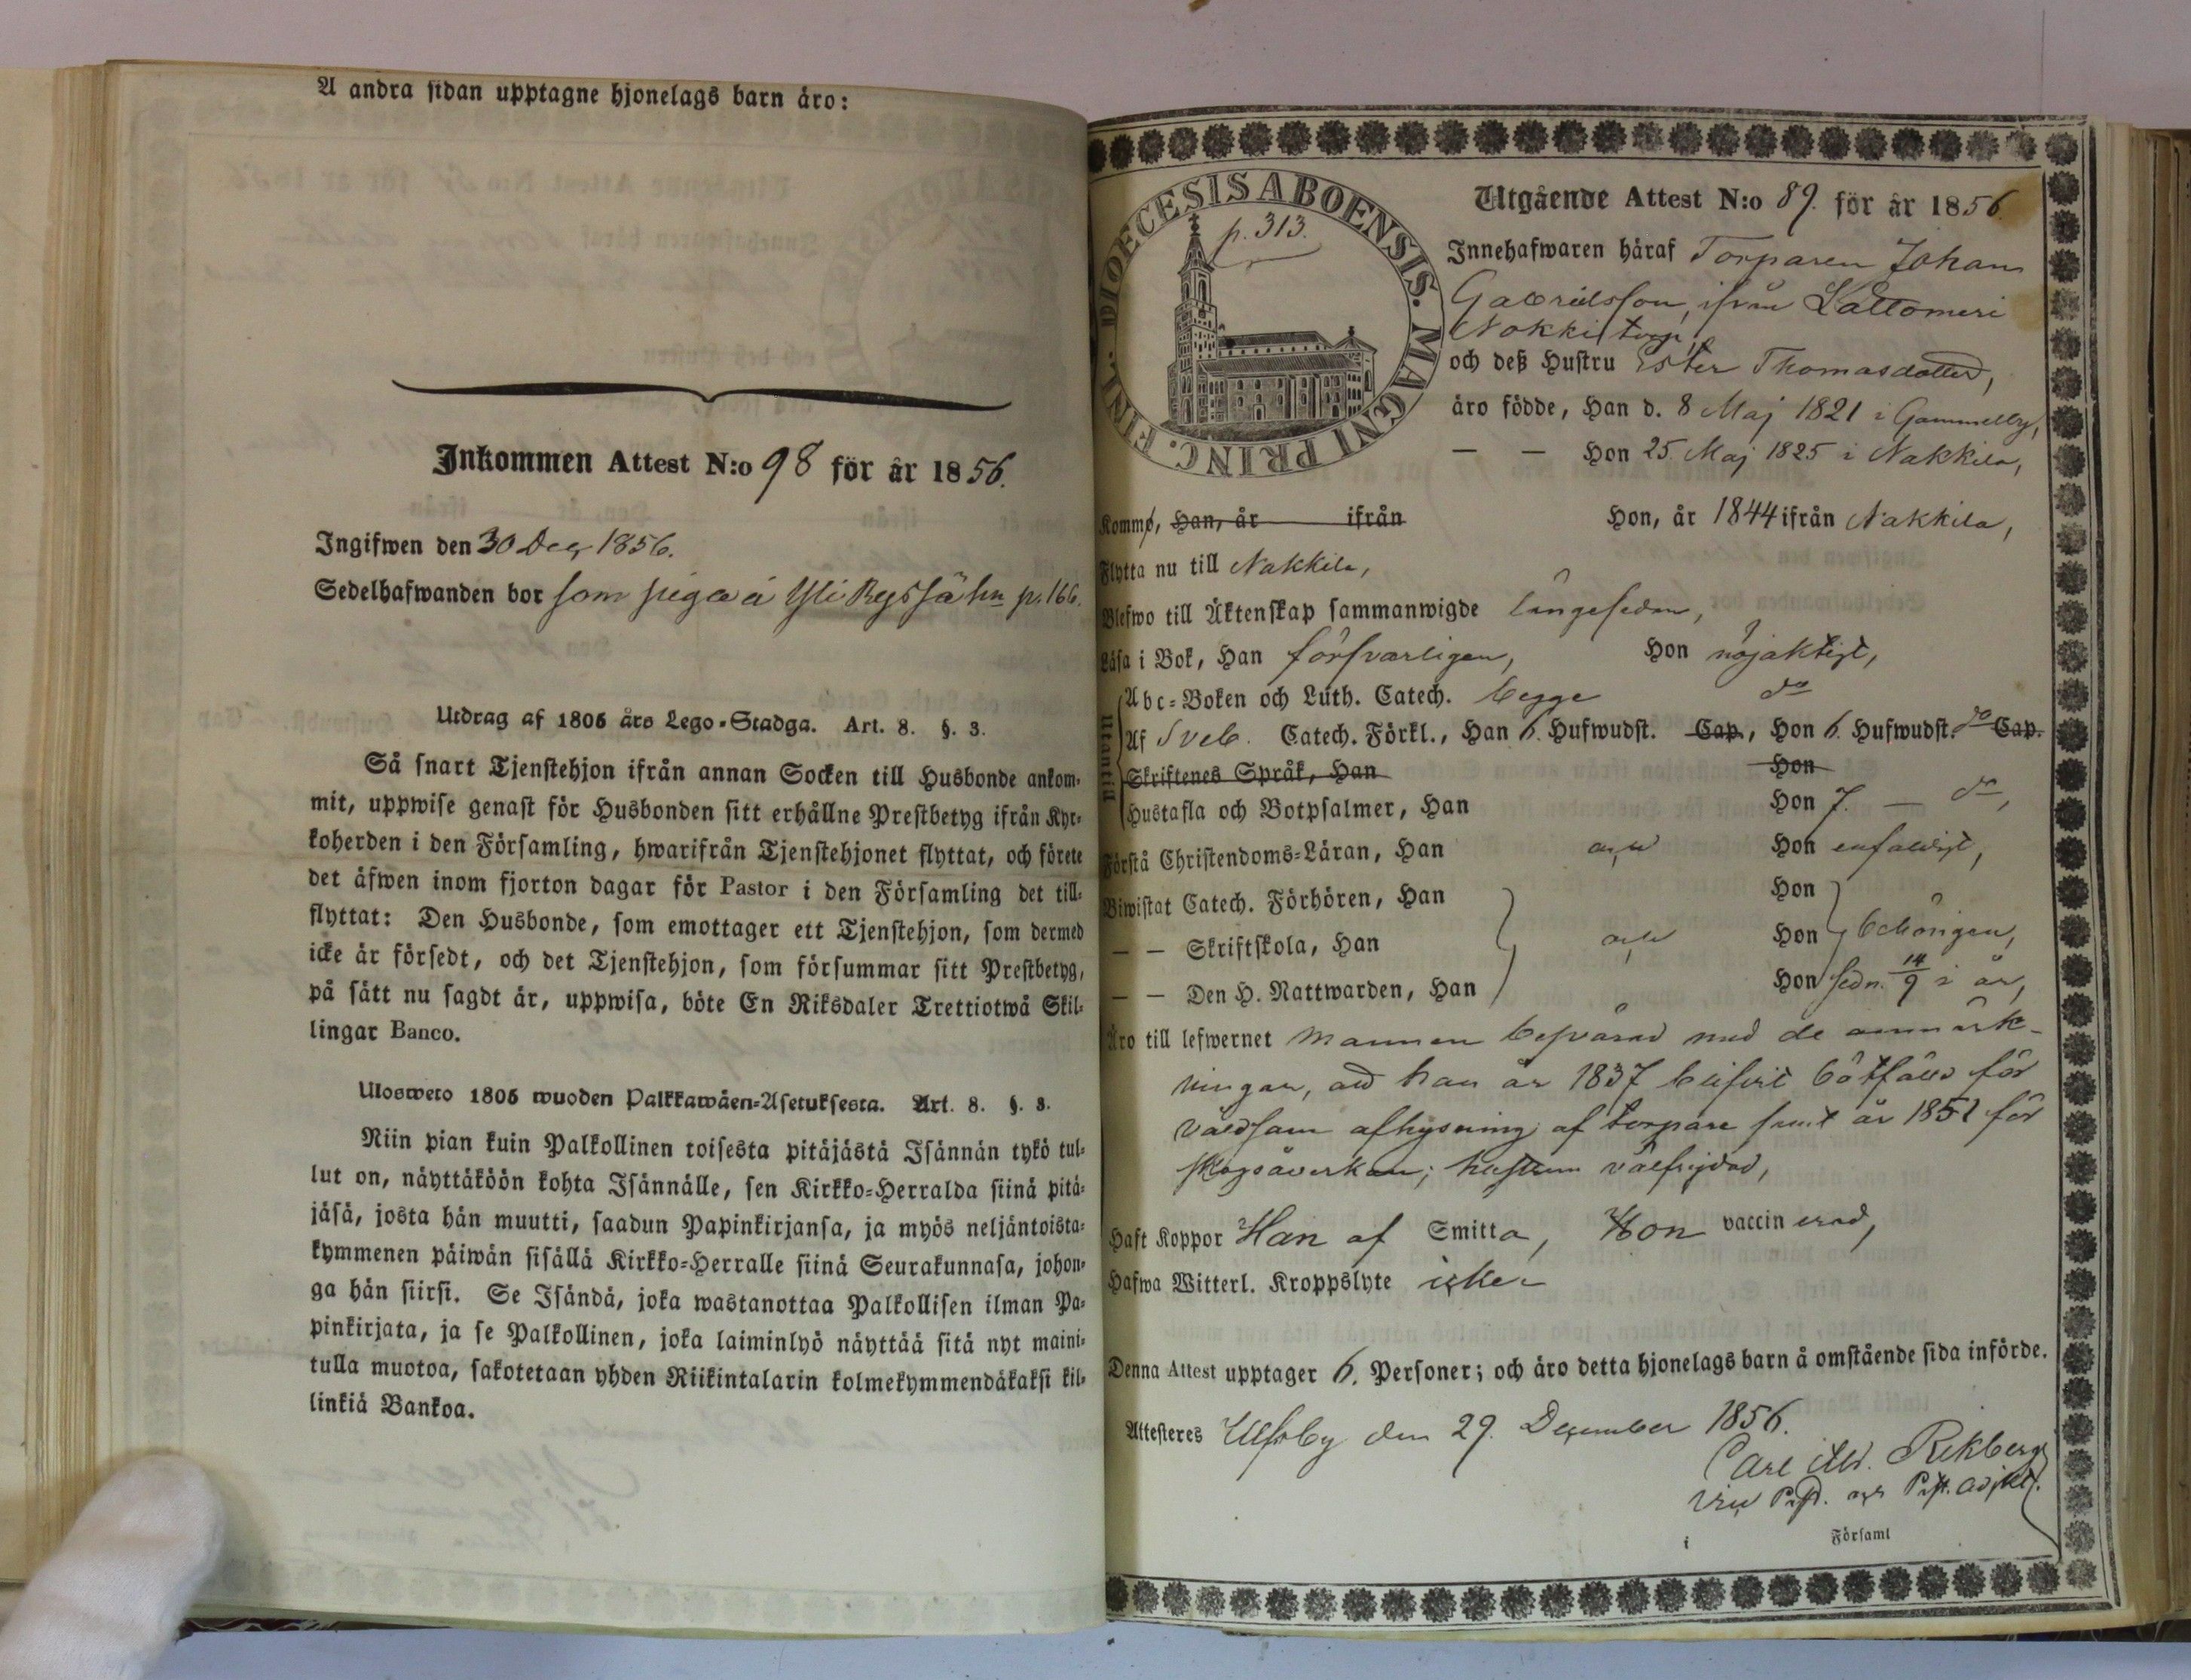 A andra sidan upptagne hjonelags barn äro:
Inkommen Attest N:o 98 för år 1856.
Ingifwen den 30 Dec 1856.
Sedelhafwanden bor som piga å Yli p. 166.
Utdrag af 1805 års Lego-Stadga. Art. 8. §. 3.
Så snart Tjenstehjon ifrån annan Socken till Husbonde ankom-
mit, uppwise genast för Husbonden sitt erhållne Prestbetyg ifrån Kyr-
koherden i den Församling, hwarifrån Tjenstehjonet flyttat, och förete
det äfwen inom fjorton dagar för Pastor i den Församling det till-
flyttat: Den Husbonde, som emottager ett Tjenstehjon, som dermed
icke är försedt, och det Tjenstehjon, som försummar sitt Prestbetyg,
på sätt nu sagdt är, uppwisa, böte En Riksdaler Trettiotwå Skil-
lingar Banco.
Ulosweto 1805 wuoden Palkkawäen-Asetuksesta. Art. 8. §. 3.
Niin pian kuin Palkollinen toisesta pitäjästä Isännän tykö tul-
lut on, näyttäköön kohta Isännälle, sen Kirkko-Herralda siinä pitä-
jäsä, josta hän muutti, saadun Papinkirjansa, ja myös neljäntoista-
kymmenen päiwän sisällä Kirkko-Herralle siinä Seurakunnasa, johon-
ga hän siirsi. Se Isändä, joka wastanottaa Palkollisen ilman Pa-
pinkirjata, ja se Palkollinen, joka laiminlyö näyttää sitä nyt maini-
tulla muotoa, sakotetaan yhden Riikintalarin kolmekymmendäkaksi kil-
linkiä Bankoa.
DIOECESIS ABOENSIS. MAGNI PRINC. FINL.
p. 313.
Utgående Attest N:o 89. för år 1856.
Innehafwaren häraf Torparen Johan
Gabrielsson, ifrån Lattomeri
Nokki torp,
och deß Hustru Ester Thomasdotter,
äro födde, Han d. 8 Maj 1821 i Gammelby,
— — Hon 25 Maj 1825 i Nakkila,
Komm, Han, år ifrån Hon, år 1844 ifrån Nakkila,
Flytta nu till Nakkila,
Blefwo till Äktenskap sammanwigde längesedan,
Läsa i Bok, Han försvarligen, Hon nöjaktigt,
Utantil
Abc-Boken och Luth. Catech. begge do
Af Sveb. Catech. Förkl., Han 6. Hufwudst. Cap., Hon 6. Hufwudst. do Cap.
Skriftenes Språk, Han Hon
Hustafla och Botpsalmer, Han Hon 7. — do,
Förstå Christendoms-Läran, Han och Hon enfaldigt,
Biwistat Catech. Förhören, Han Hon
— — Skriftskola, Han och Hon behörigen,
— — Den H. Nattwarden, Han Hon sedn. 14/9 i år,
Äro till lefwernet mannen befvärad med de anmärk-
ningar, att han år 1837 blifvit bötfäld för
våldsam afhysning af torpare samt år 1851 för
skogsåverkan; hustrun välfrejdad,
Haft Koppor Han af Smitta, Hon vaccinerad,
Hafwa Witterl. Kroppslyte icke
Denna Attest upptager 6. Personer; och äro detta hjonelags barn å omstående sida införde.
Attesteres Ulfsby den 29. December 1856.
Carl Rekberg
Past. adjkt.
i Församl